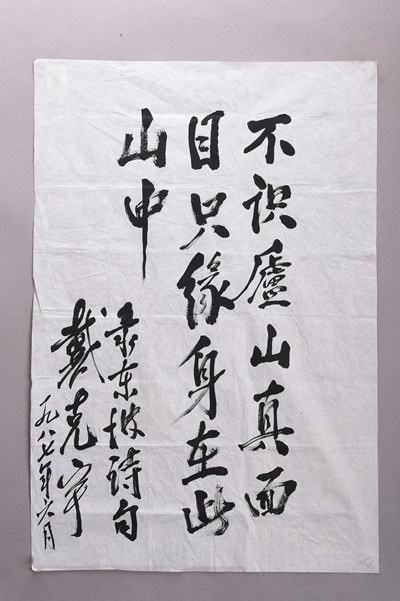 不识廬山真面
目只緣身在此
山中
录东坡诗句
戴克宇
一九八七年六月